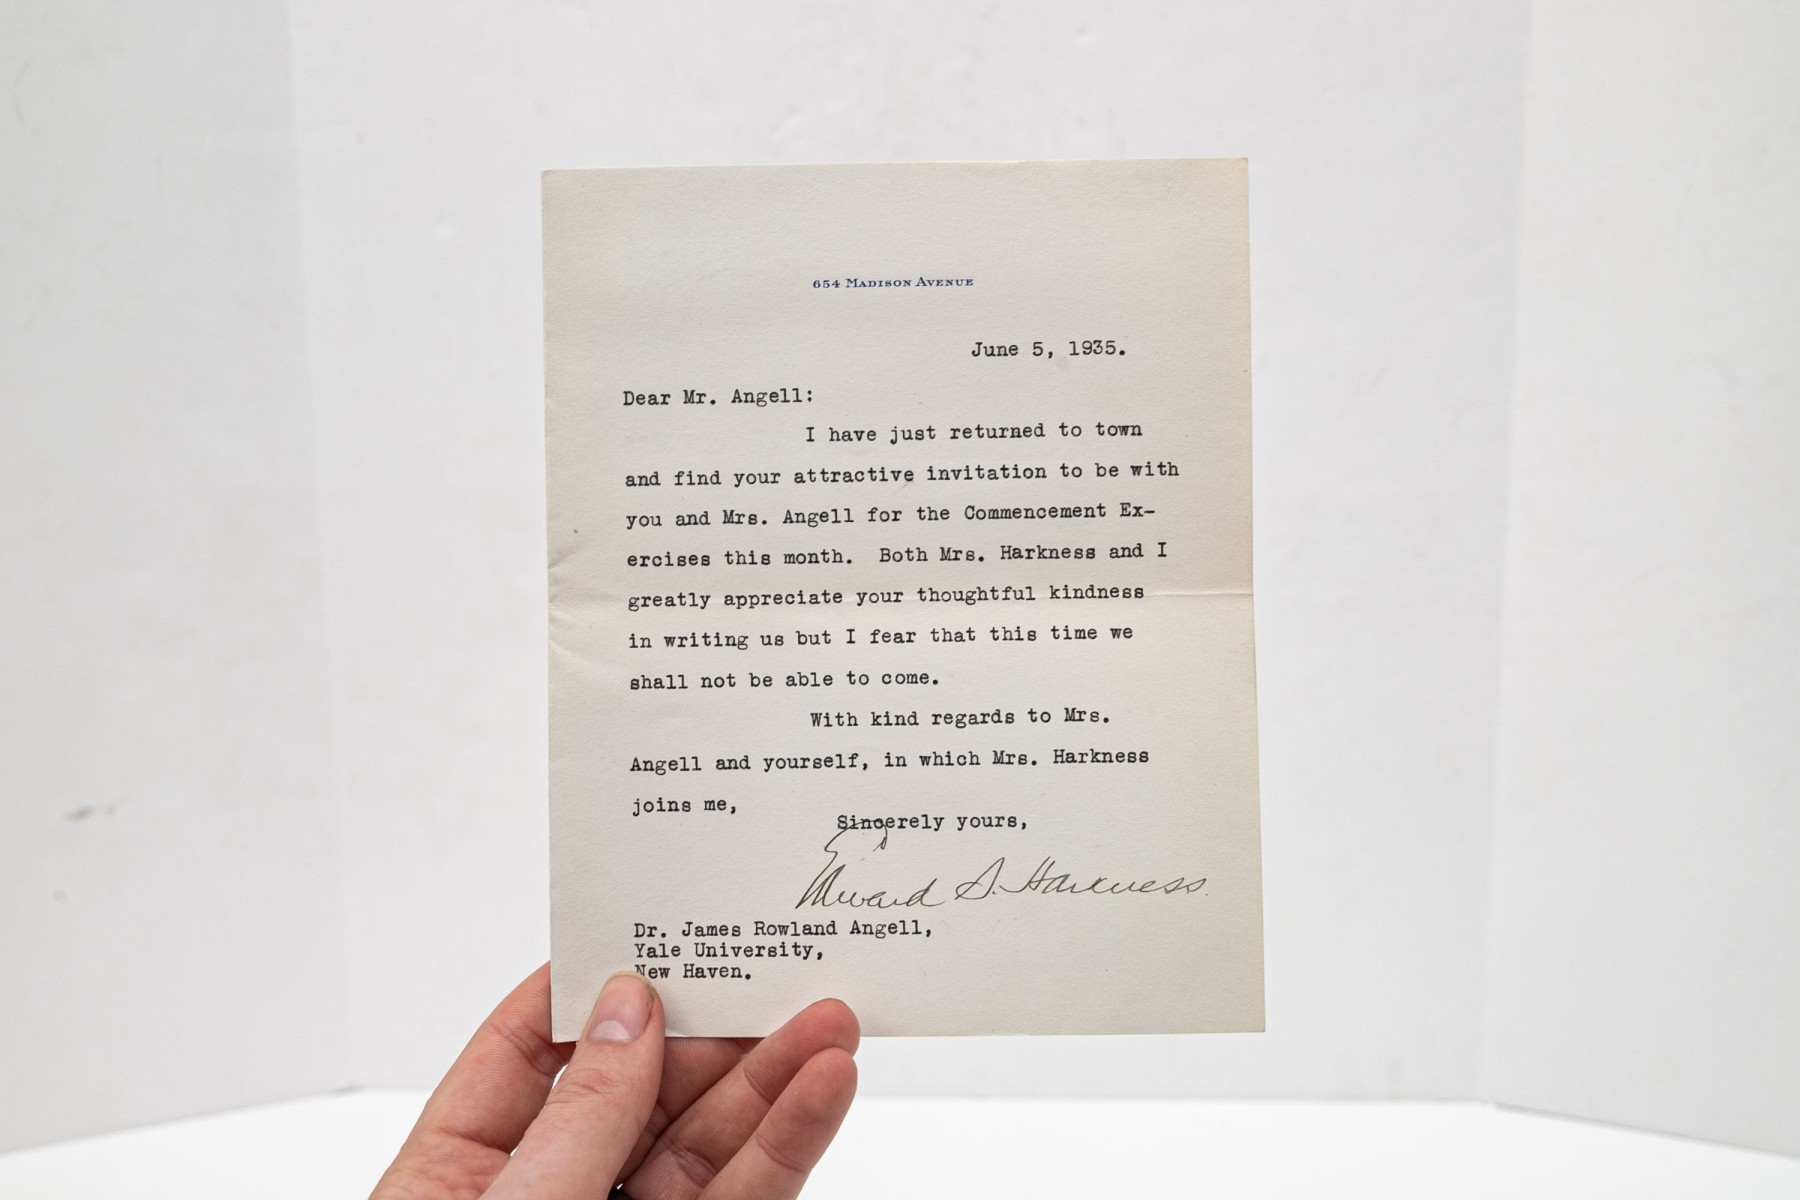 654 Madison Avenue
June 5, 1935.
Dear Mr. Angell:
I have just returned to town
and find your attractive invitation to be with
you and Mrs. Angell for the Commencement Ex-
ercises this month. Both Mrs. Harkness and I
greatly appreciate your thoughtful kindness
in writing us but I fear that this time we
shall not be able to come.
With kind regards to Mrs.
Angell and yourself, in which Mrs. Harkness
joins me,
Sincerely yours,
Edward S. Harkness.
Dr. James Rowland Angell,
Yale University,
New Haven.